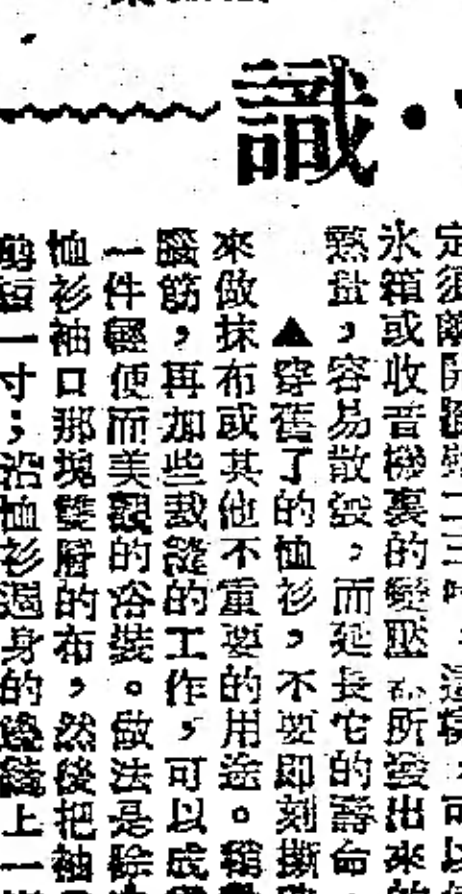 識·
定須離開牆壁二三吋,這樣,可以
冰箱或收音機裏的變壓器所發出來的
熱量,容易散發,而延長它的壽命
▲穿舊了的恤衫,不要即刻撕
來做抹布或其他不重要的用途。稍
腦筋,再加些裁縫的工作,可以成
一件輕便而美觀的浴裝。做法是除
恤衫袖口那塊雙層的布,然後把袖
剪短一寸;沿恤衫週身的邊縫上一